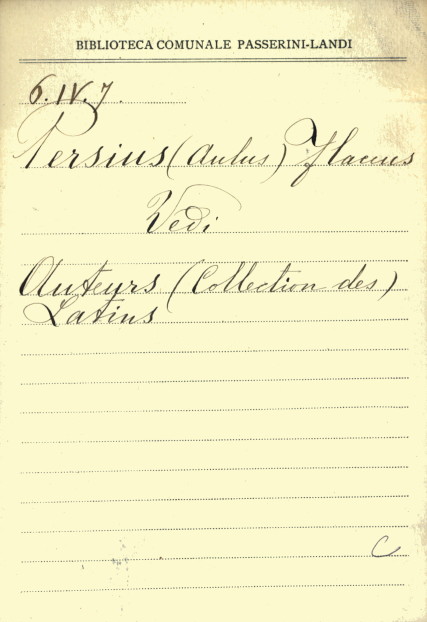 BIBLIOTECA COMUNALE PASSERINI-LANDI
6.IV.7.
Persius (Aulus) Flacus
Vedi
Auteurs (Collection des)
Latins
C